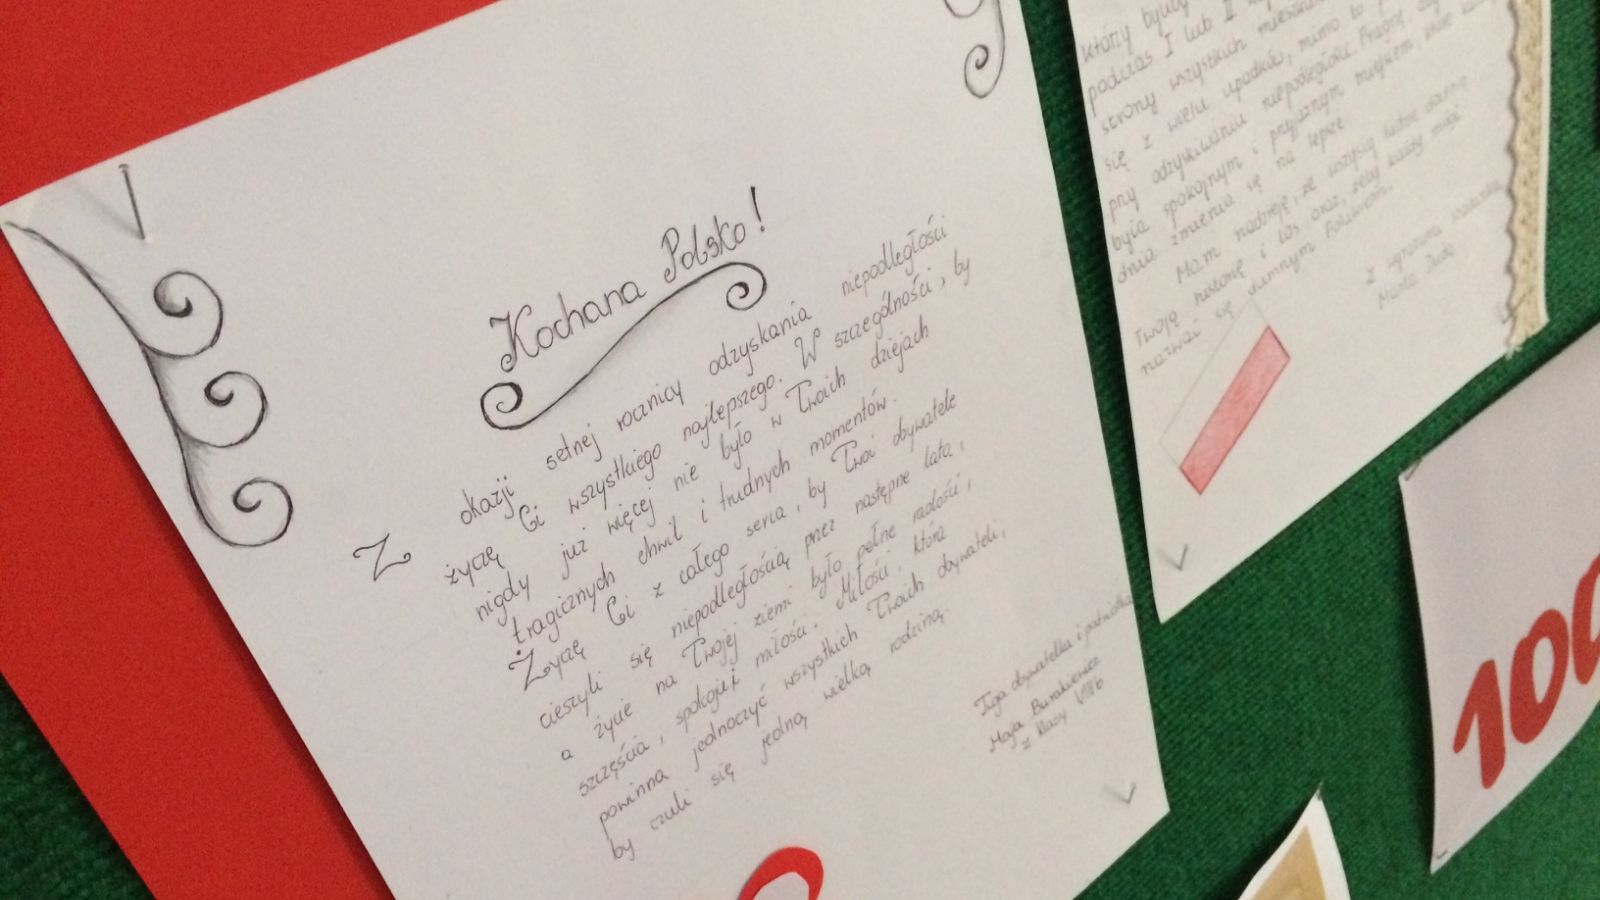 Kochana Polsko!
Z okazji setnej rocznicy odzyskania niepodległości
życzę Ci wszystkiego najlepszego. W szczególności, by
nigdy już więcej nie było w Twoich dziejach
tragicznych chwil i trudnych momentów.
Życzę Ci z całego serca, by Twoi obywatele
cieszyli się niepodległością przez następne lata,
a życie na Twojej ziemi było pełne radości,
szczęścia, spokoju i miłości. Miłości, która
powinna jednoczyć wszystkich Twoich obywateli,
by czuli się jedną, wielką rodziną.
Twoja obywatelka i patriotka
Maja
z klasy VIIIb
którzy byli
podczas I lub II
strony wszystkich
się z wielu upadków, mimo to
przy odzyskiwaniu niepodległości. Pragnę, abyś
była spokojnym i przyjaznym miejscem, które
dnia zmienia się na lepsze.
Mam nadzieję, że wszyscy ludzie docenią
Twoją historię i los oraz, żeby każdy mógł
nazwać się dumnym Polakiem.
Z wyrazami szacunku
100